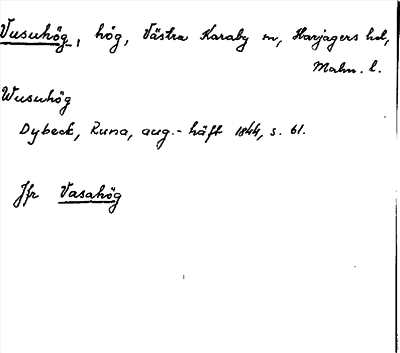 Vusuhög, hög, Västra Karaby sn, Harjagers hd,
Malm. l.
Wusuhög
Dybeck, Runa, aug.-häft 1844, s. 61.
Jfr Vasahög